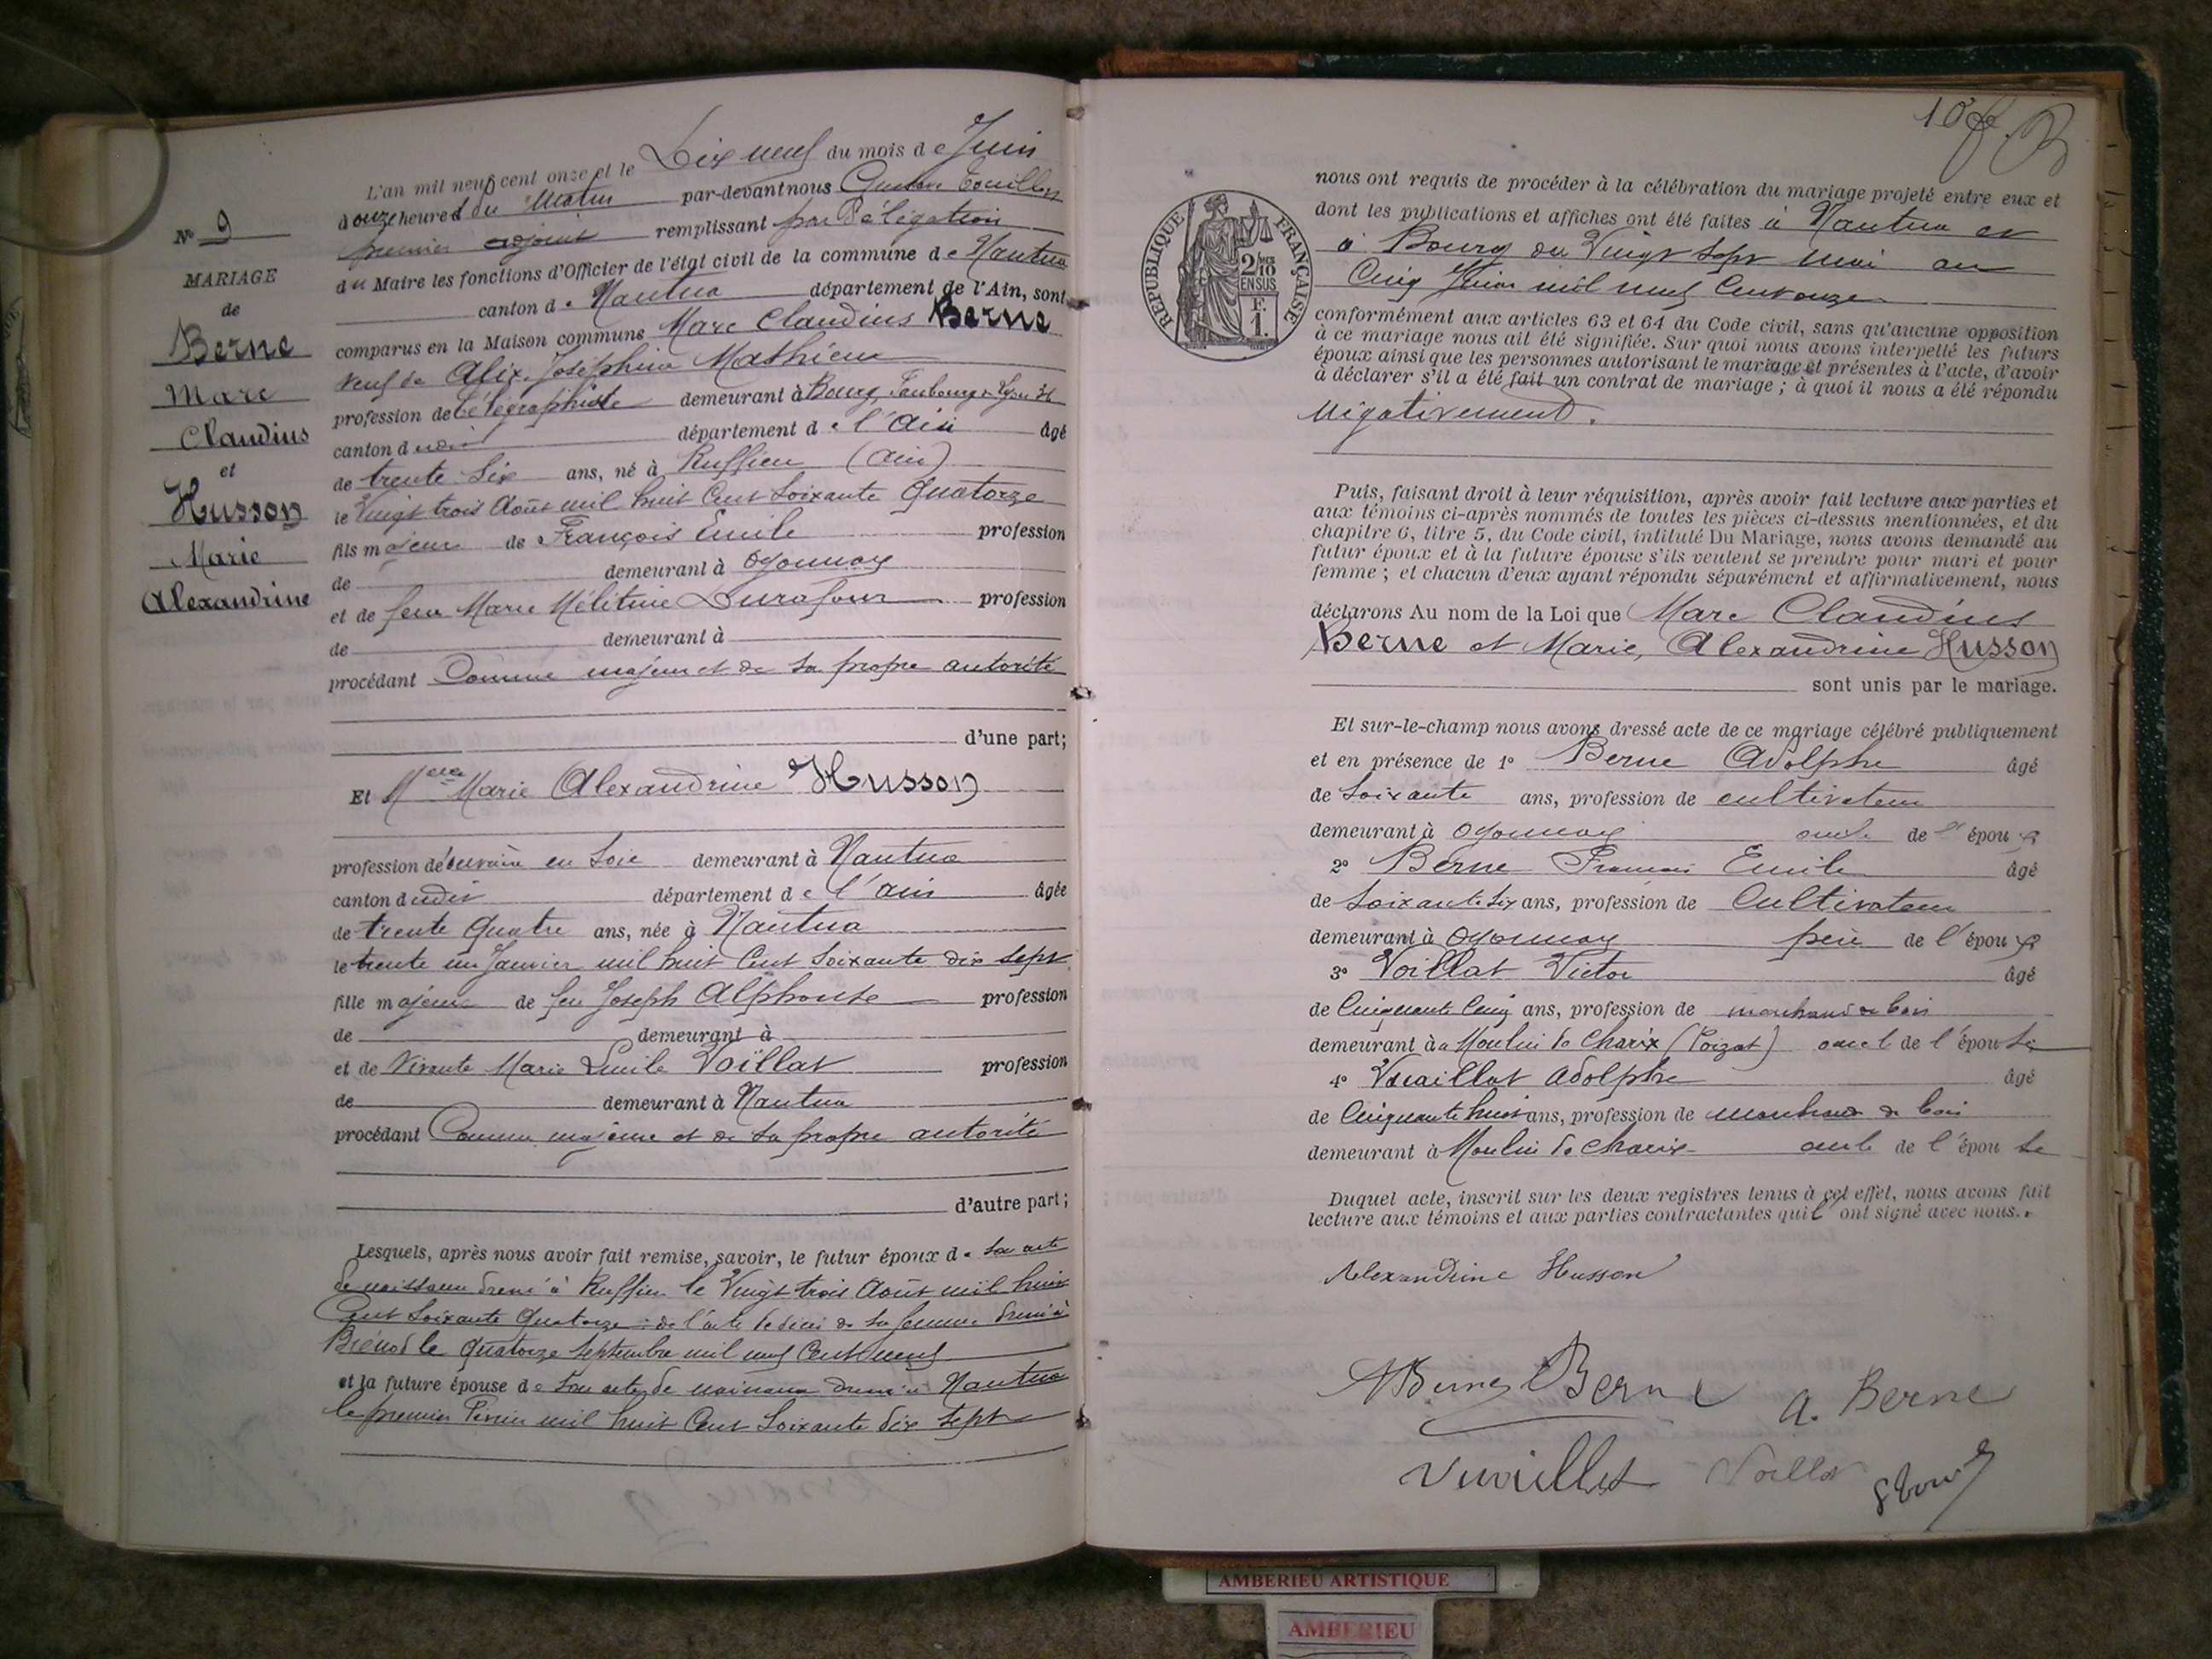 L'an mil neuf cent onze et le Dix neuf du mois de Juin
à onze heures du Matin par-devant nous Gustave
premier adjoint remplissant par Délégation
du Maire les fonctions d'Officier de l'état civil de la commune de Nantua
canton de Nantua département de l'Ain, sont
comparus en la Maison commune Marc Claudius Berne
veuf de Alix Joséphine Mathieu
profession de télégraphiste demeurant à Bourg, Faubourg Lyon
canton dudit département de l'Ain âgé
de trente six ans, né à Ruffieu (Ain)
le Vingt trois Août mil huit Cent Soixante Quatorze
fils majeur de François Emile profession
de demeurant à Oyonnax
et de feue Marie Mélitine Durafour profession
de demeurant à
procédant Comme majeur et de sa propre autorité
d'une part;
Et Melle Marie Alexandrine Husson
profession d'ouvrière en Soie demeurant à Nantua
canton dudit département de l'Ain âgée
de trente Quatre ans, née à Nantua
le trente un Janvier mil huit Cent Soixante dix sept
fille majeure de feu Joseph Alphonse profession
de demeurant à
et de Vivante Marie Lucile Voillat profession
de demeurant à Nantua
procédant Comme majeure et de sa propre autorité
d'autre part;
Lesquels, après nous avoir fait remise, savoir, le futur époux de son acte
de naissance dressé à Ruffieu le Vingt trois Août mil huit
Cent Soixante Quatorze : de l'acte de décès de sa femme dressé à
Briénod le Quatorze Septembre mil neuf Cent neuf
et la future épouse de son acte de naissance dressé à Nantua
le premier Février mil huit Cent Soixante dix sept
N° 9
MARIAGE
de
Berne
Marc
Claudius
et
Husson
Marie
Alexandrine
10
RÉPUBLIQUE FRANÇAISE
2/10
EN SUS
F.
1.
nous ont requis de procéder à la célébration du mariage projeté entre eux et
dont les publications et affiches ont été faites à Nantua et
à Bourg du Vingt Sept mai au
Cinq Juin mil neuf Cent onze
conformément aux articles 63 et 64 du Code civil, sans qu'aucune opposition
à ce mariage nous ait été signifiée. Sur quoi nous avons interpellé les futurs
époux ainsi que les personnes autorisant le mariage et présentes à l'acte, d'avoir
à déclarer s'il a été fait un contrat de mariage ; à quoi il nous a été répondu
négativement.
Puis, faisant droit à leur réquisition, après avoir fait lecture aux parties et
aux témoins ci-après nommés de toutes les pièces ci-dessus mentionnées, et du
chapitre 6, titre 5, du Code civil, intitulé Du Mariage, nous avons demandé au
futur époux et à la future épouse s'ils veulent se prendre pour mari et pour
femme ; et chacun d'eux ayant répondu séparément et affirmativement, nous
déclarons Au nom de la Loi que Marc Claudius
Berne et Marie, Alexandrine Husson
sont unis par le mariage.
Et sur-le-champ nous avons dressé acte de ce mariage célébré publiquement
et en présence de 1° Berne Adolphe âgé
de Soixante ans, profession de cultivateur
demeurant à Oyonnax oncle de l'époux
2° Berne François Emile âgé
de Soixante Six ans, profession de Cultivateur
demeurant à Oyonnax père de l'époux
3° Voillat Victor âgé
de Cinquante Cinq ans, profession de marchand de bois
demeurant à Moulin de Charix (Poizat) oncle de l'épouse
4° Vuaillat Adolphe âgé
de Cinquante huit ans, profession de marchand de bois
demeurant à Moulin de Charix oncle de l'épouse
Duquel acte, inscrit sur les deux registres tenus à cet effet, nous avons fait
lecture aux témoins et aux parties contractantes qui l'ont signé avec nous.
Alexandrine Husson
Berne Berne a. Berne
Vuaillat Voillat
AMBERIEU ARTISTIQUE
AMBERIEU